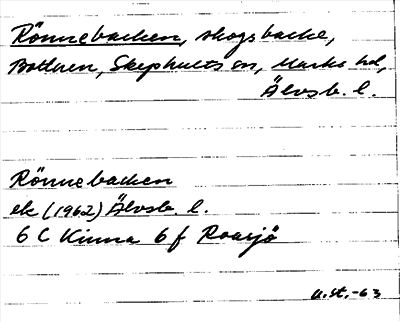 Rönnebacken, skogsbacke,
Bottnen, Skephults sn, Marks hd,
Älvsb. l.
Rönnebacken
ek (1962) Älvsb. l.
6 C Kinna 6 f Roasjö
u.st.-63